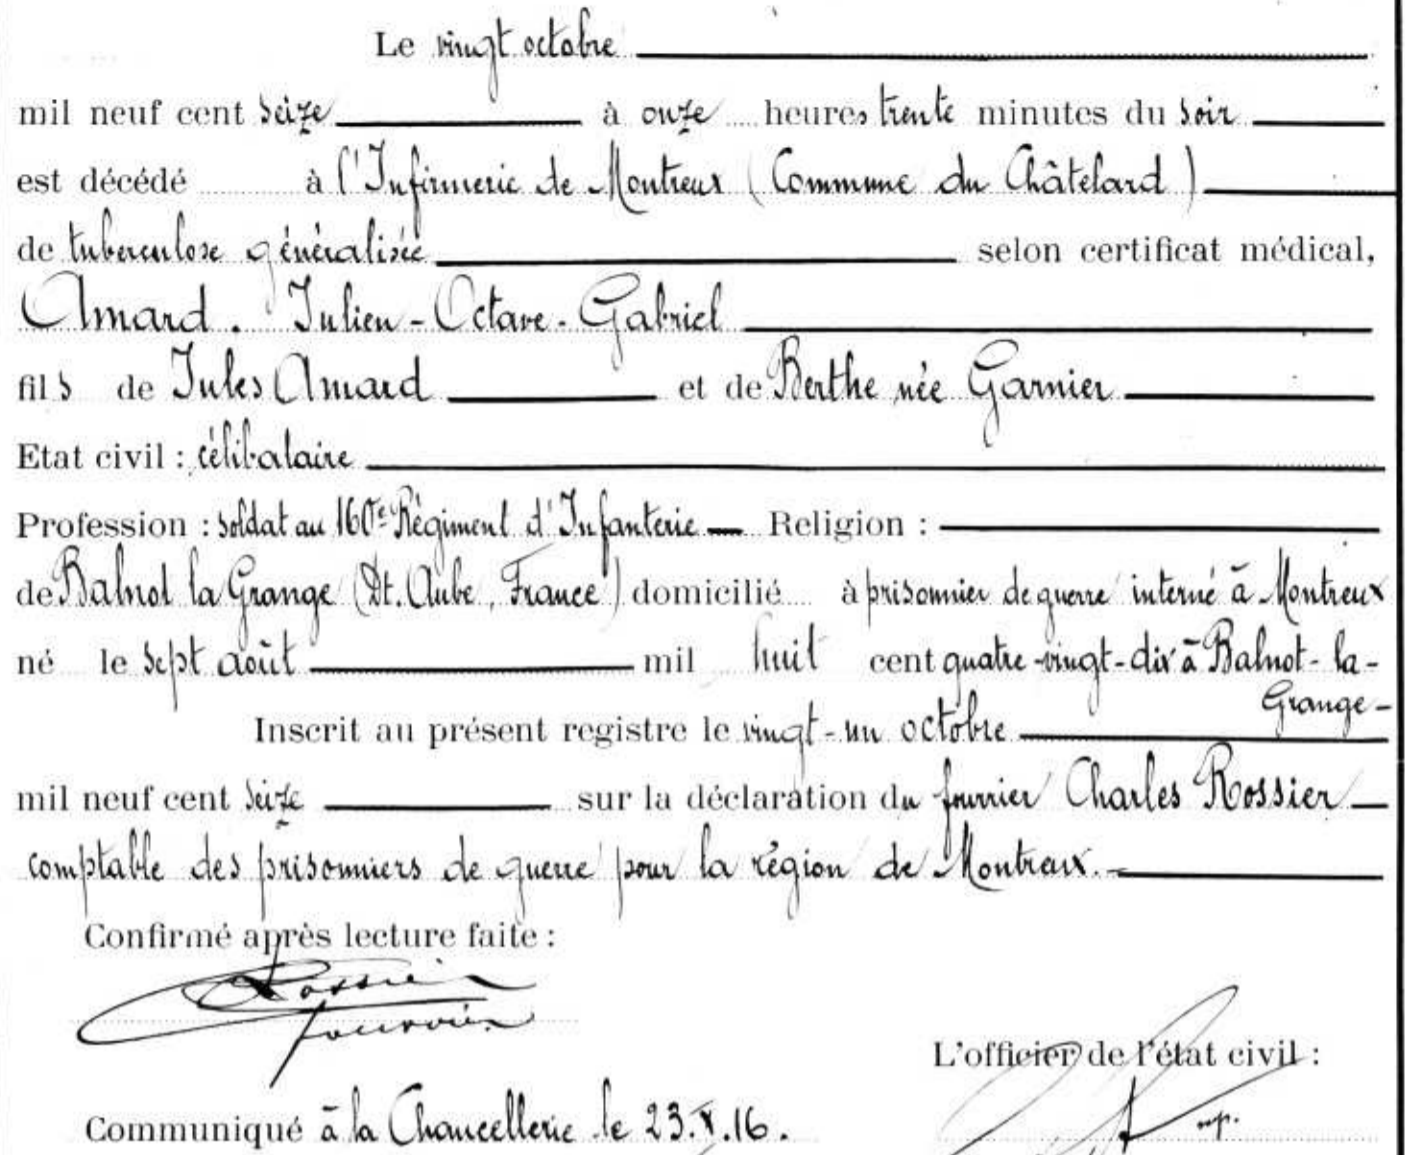 Le vingt octobre
mil neuf cent seize à onze heures trente minutes du soir
est décédé à l'Infirmerie de Montreux (Commune du Châtelard)
de tuberculose généralisée selon certificat médical,
Amard. Julien-Octave-Gabriel
fils de Jules Amard et de Berthe née Garnier
Etat civil : célibataire
Profession : soldat au 160e Régiment d'Infanterie Religion :
de Balnot la Grange (Dt. Aube, France) domicilié à prisonnier de guerre interné à Montreux
né le sept août mil huit cent quatre-vingt-dix à Balnot-la-
Grange-
Inscrit au présent registre le vingt-un octobre
mil neuf cent seize sur la déclaration du fourrier Charles Rossier
comptable des prisonniers de guerre pour la région de Montreux.
Confirmé après lecture faite :
Rossier
fourrier
L'officier de l'état civil :
Communiqué à la Chancellerie le 23.X.16.